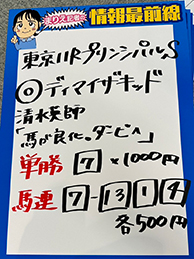 とりえ記者の情報最前線
東京11RプリンシパルS
◎ディマイザキッド
清水英師
「馬が良化。ダービーへ」
単勝 7 ×1000円
馬連 7-13 1 4
各500円